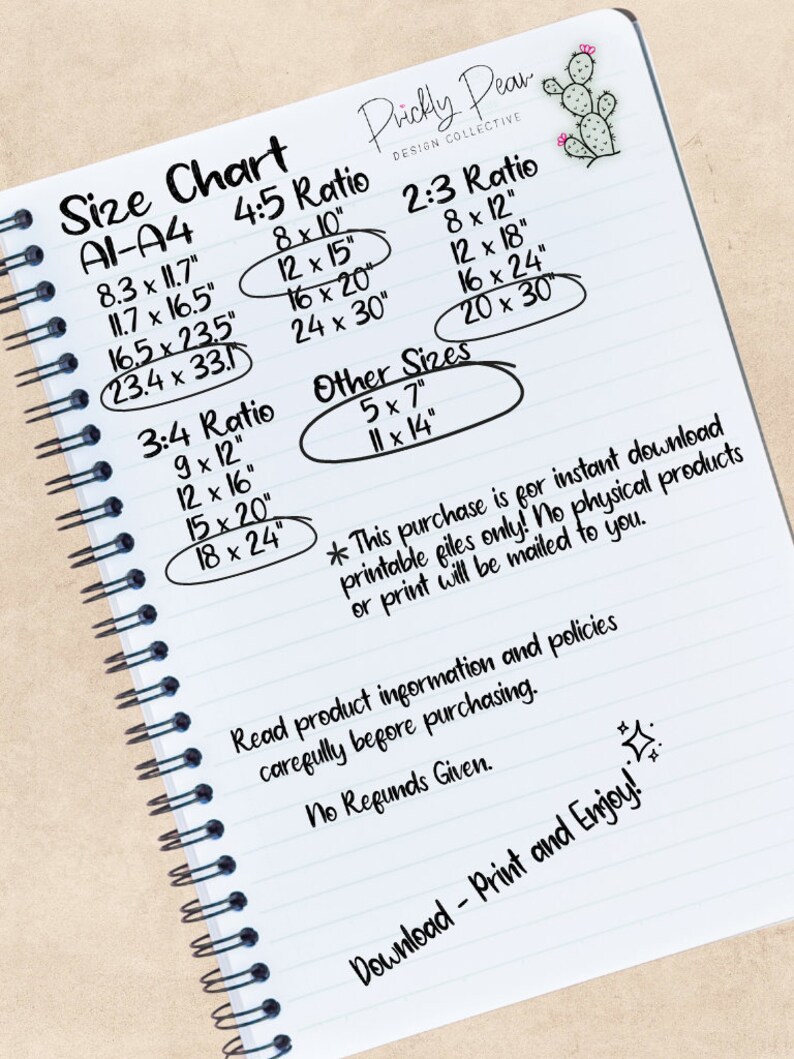 Prickly Pear
DESIGN COLLECTIVE
Size Chart
A1-A4
8.3 x 11.7"
11.7 x 16.5"
16.5 x 23.5"
23.4 x 33.1"
4:5 Ratio
8 x 10"
12 x 15"
16 x 20"
24 x 30"
2:3 Ratio
8 x 12"
12 x 18"
16 x 24"
20 x 30"
3:4 Ratio
9 x 12"
12 x 16"
15 x 20"
18 x 24"
Other Sizes
5 x 7"
11 x 14"
*This purchase is for instant download
printable files only! No physical products
or print will be mailed to you.
Read product information and policies
carefully before purchasing.
No Refunds Given.
Download - Print and Enjoy!